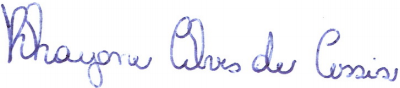 Khayane Alves de Assis